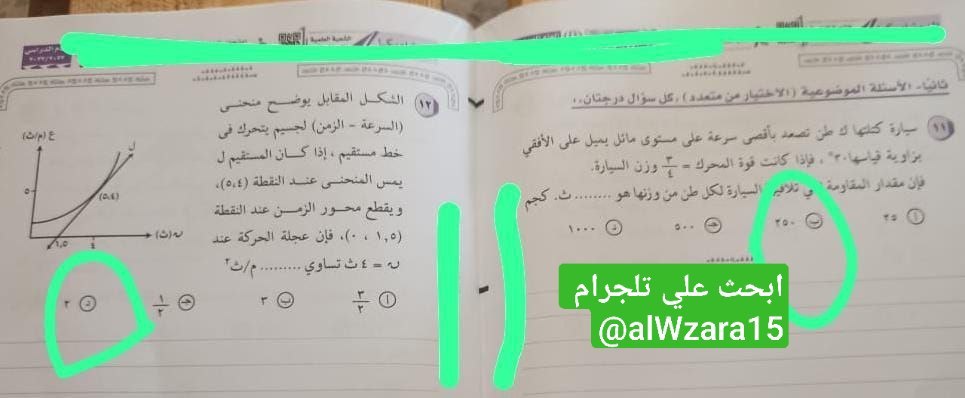 ثانيًا- الأسئلة الموضوعية (الاختيار من متعدد)، كل سؤال درجتان،،
١١ سيارة كتلتها ك طن تصعد بأقصى سرعة على مستوى مائل يميل على الأفقي
بزاوية قياسها ٣٠°، فإذا كانت قوة المحرك = ٣/٤ وزن السيارة.
فإن مقدار المقاومة التي تلاقيها السيارة لكل طن من وزنها هو ........ ث. كجم
أ ٢٥ ب ٢٥٠ ج ٥٠٠ د ١٠٠٠
ابحث علي تلجرام
@alWzara15
١٢ الشكل المقابل يوضح منحنى
(السرعة - الزمن) لجسيم يتحرك فى
خط مستقيم، إذا كان المستقيم ل
يمس المنحنى عند النقطة (٥،٤)،
ويقطع محور الزمن عند النقطة
(١,٥ ، ٠)، فإن عجلة الحركة عند
ن = ٤ ث تساوي ......... م/ث٢
أ ٣/٢ ب ٣ ج ١/٢ د ٢
ع (م/ث)
ل
٥
(٥،٤)
١,٥
٤
ن (ث)
التنمية العلمية